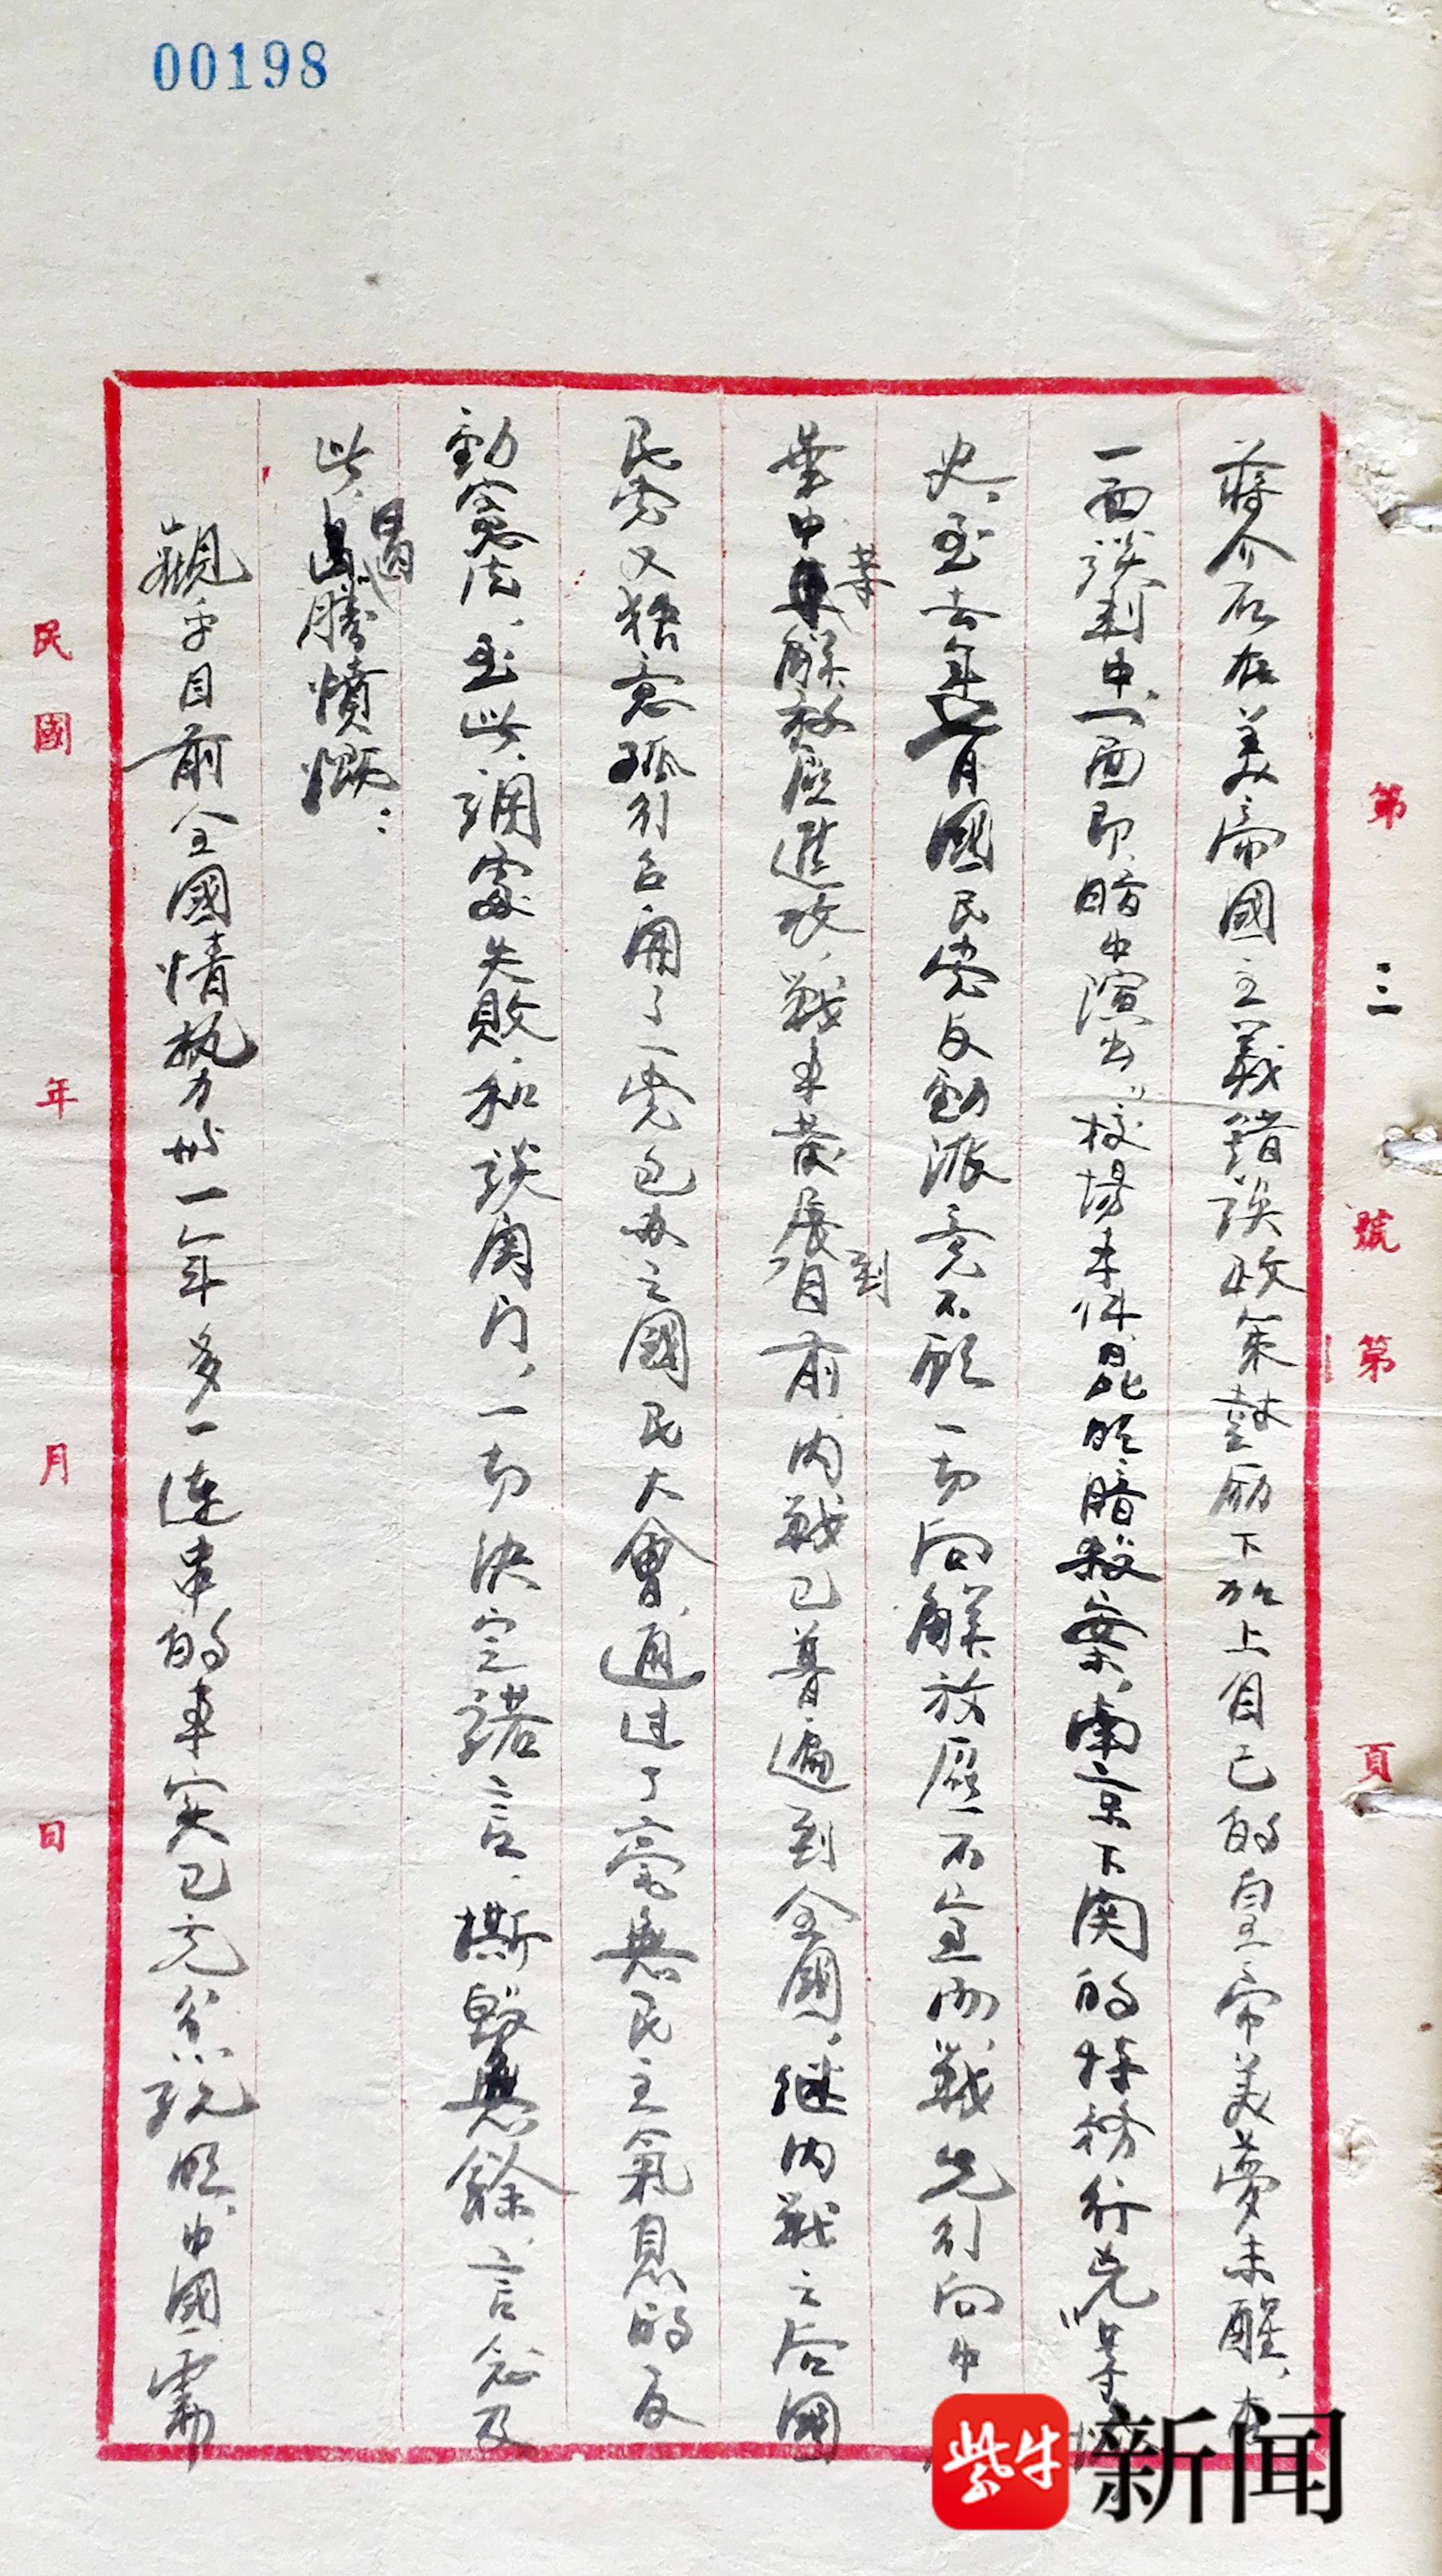 00198
第 三 號 第 頁
蔣介石在美帝國主義錯誤政策鼓励下加上自己的皇帝美夢未醒，在
一面談判中，一面即暗中演出“校場事件，昆明暗殺案，南京下関的特務行兇”等
史，至去年七月國民党反動派竟不顧一切向解放區不宣而战先行向中
業中共解放區進攻，戰事發展到目前，内戰已普遍到全國，継内戰之后國
民党又糖意孤行召開了一党包办之國民大會，通过了毫無民主氣息的反
動憲法，至此，調處失敗，和談関门，一切決定諾言，撕毀無餘，言念及
此，曷勝憤慨：
觀乎目前全國情勢與一年多一連串的事实已充分説明，中國需
民國 年 月 日
紫牛新闻